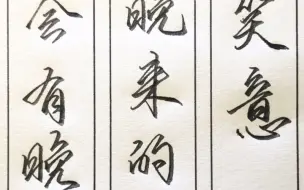 笑意
晚来的
会有晚